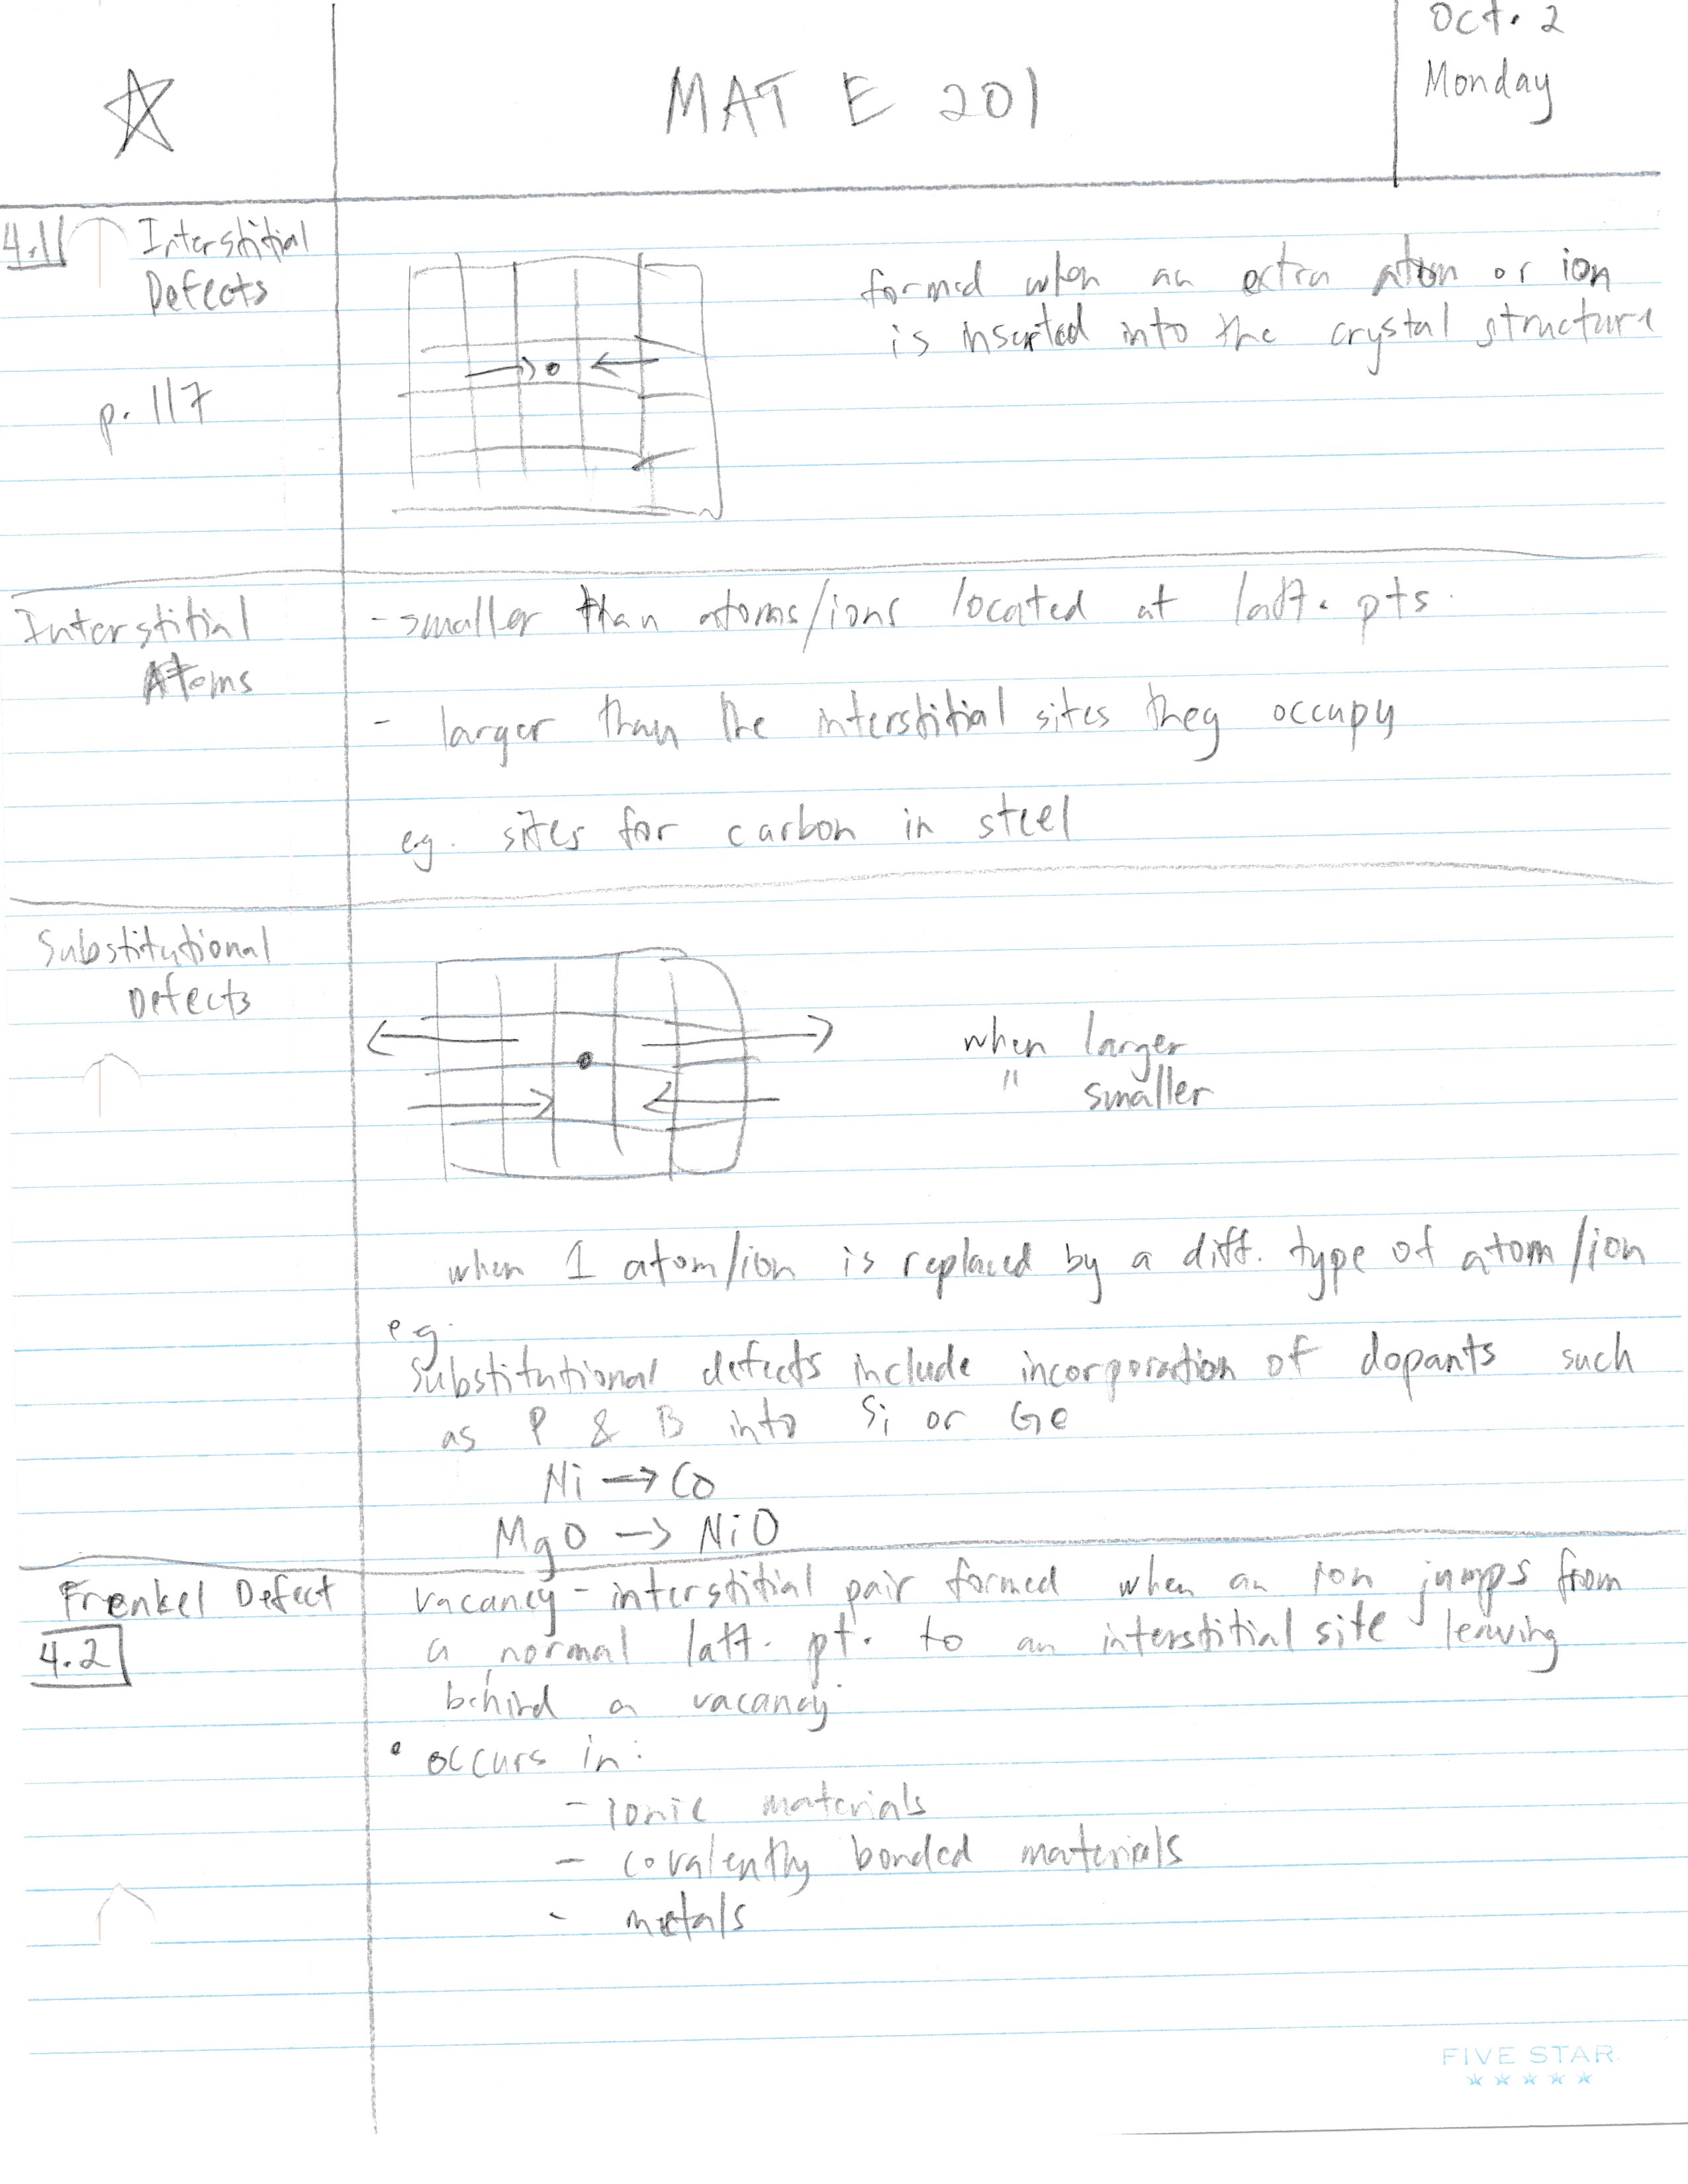 Oct. 2
Monday
MAT E 201
4.1
Interstitial
Defects
p. 117
formed when an extra atom or ion
is inserted into the crystal structure
Interstitial
Atoms
- smaller than atoms/ions located at latt. pts.
- larger than the interstitial sites they occupy
eg. sites for carbon in steel
Substitutional
Defects
when larger
" smaller
when 1 atom/ion is replaced by a diff. type of atom/ion
eg.
Substitutional defects include incorporation of dopants such
as P & B into Si or Ge
Ni → Co
MgO → NiO
Frenkel Defect
4.2
vacancy - interstitial pair formed when an ion jumps from
a normal latt. pt. to an interstitial site leaving
behind a vacancy
• occurs in:
- ionic materials
- covalently bonded materials
- metals
FIVE STAR